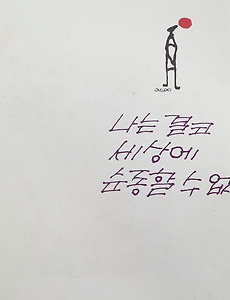 나는 결코
세상에
순종할 수 없